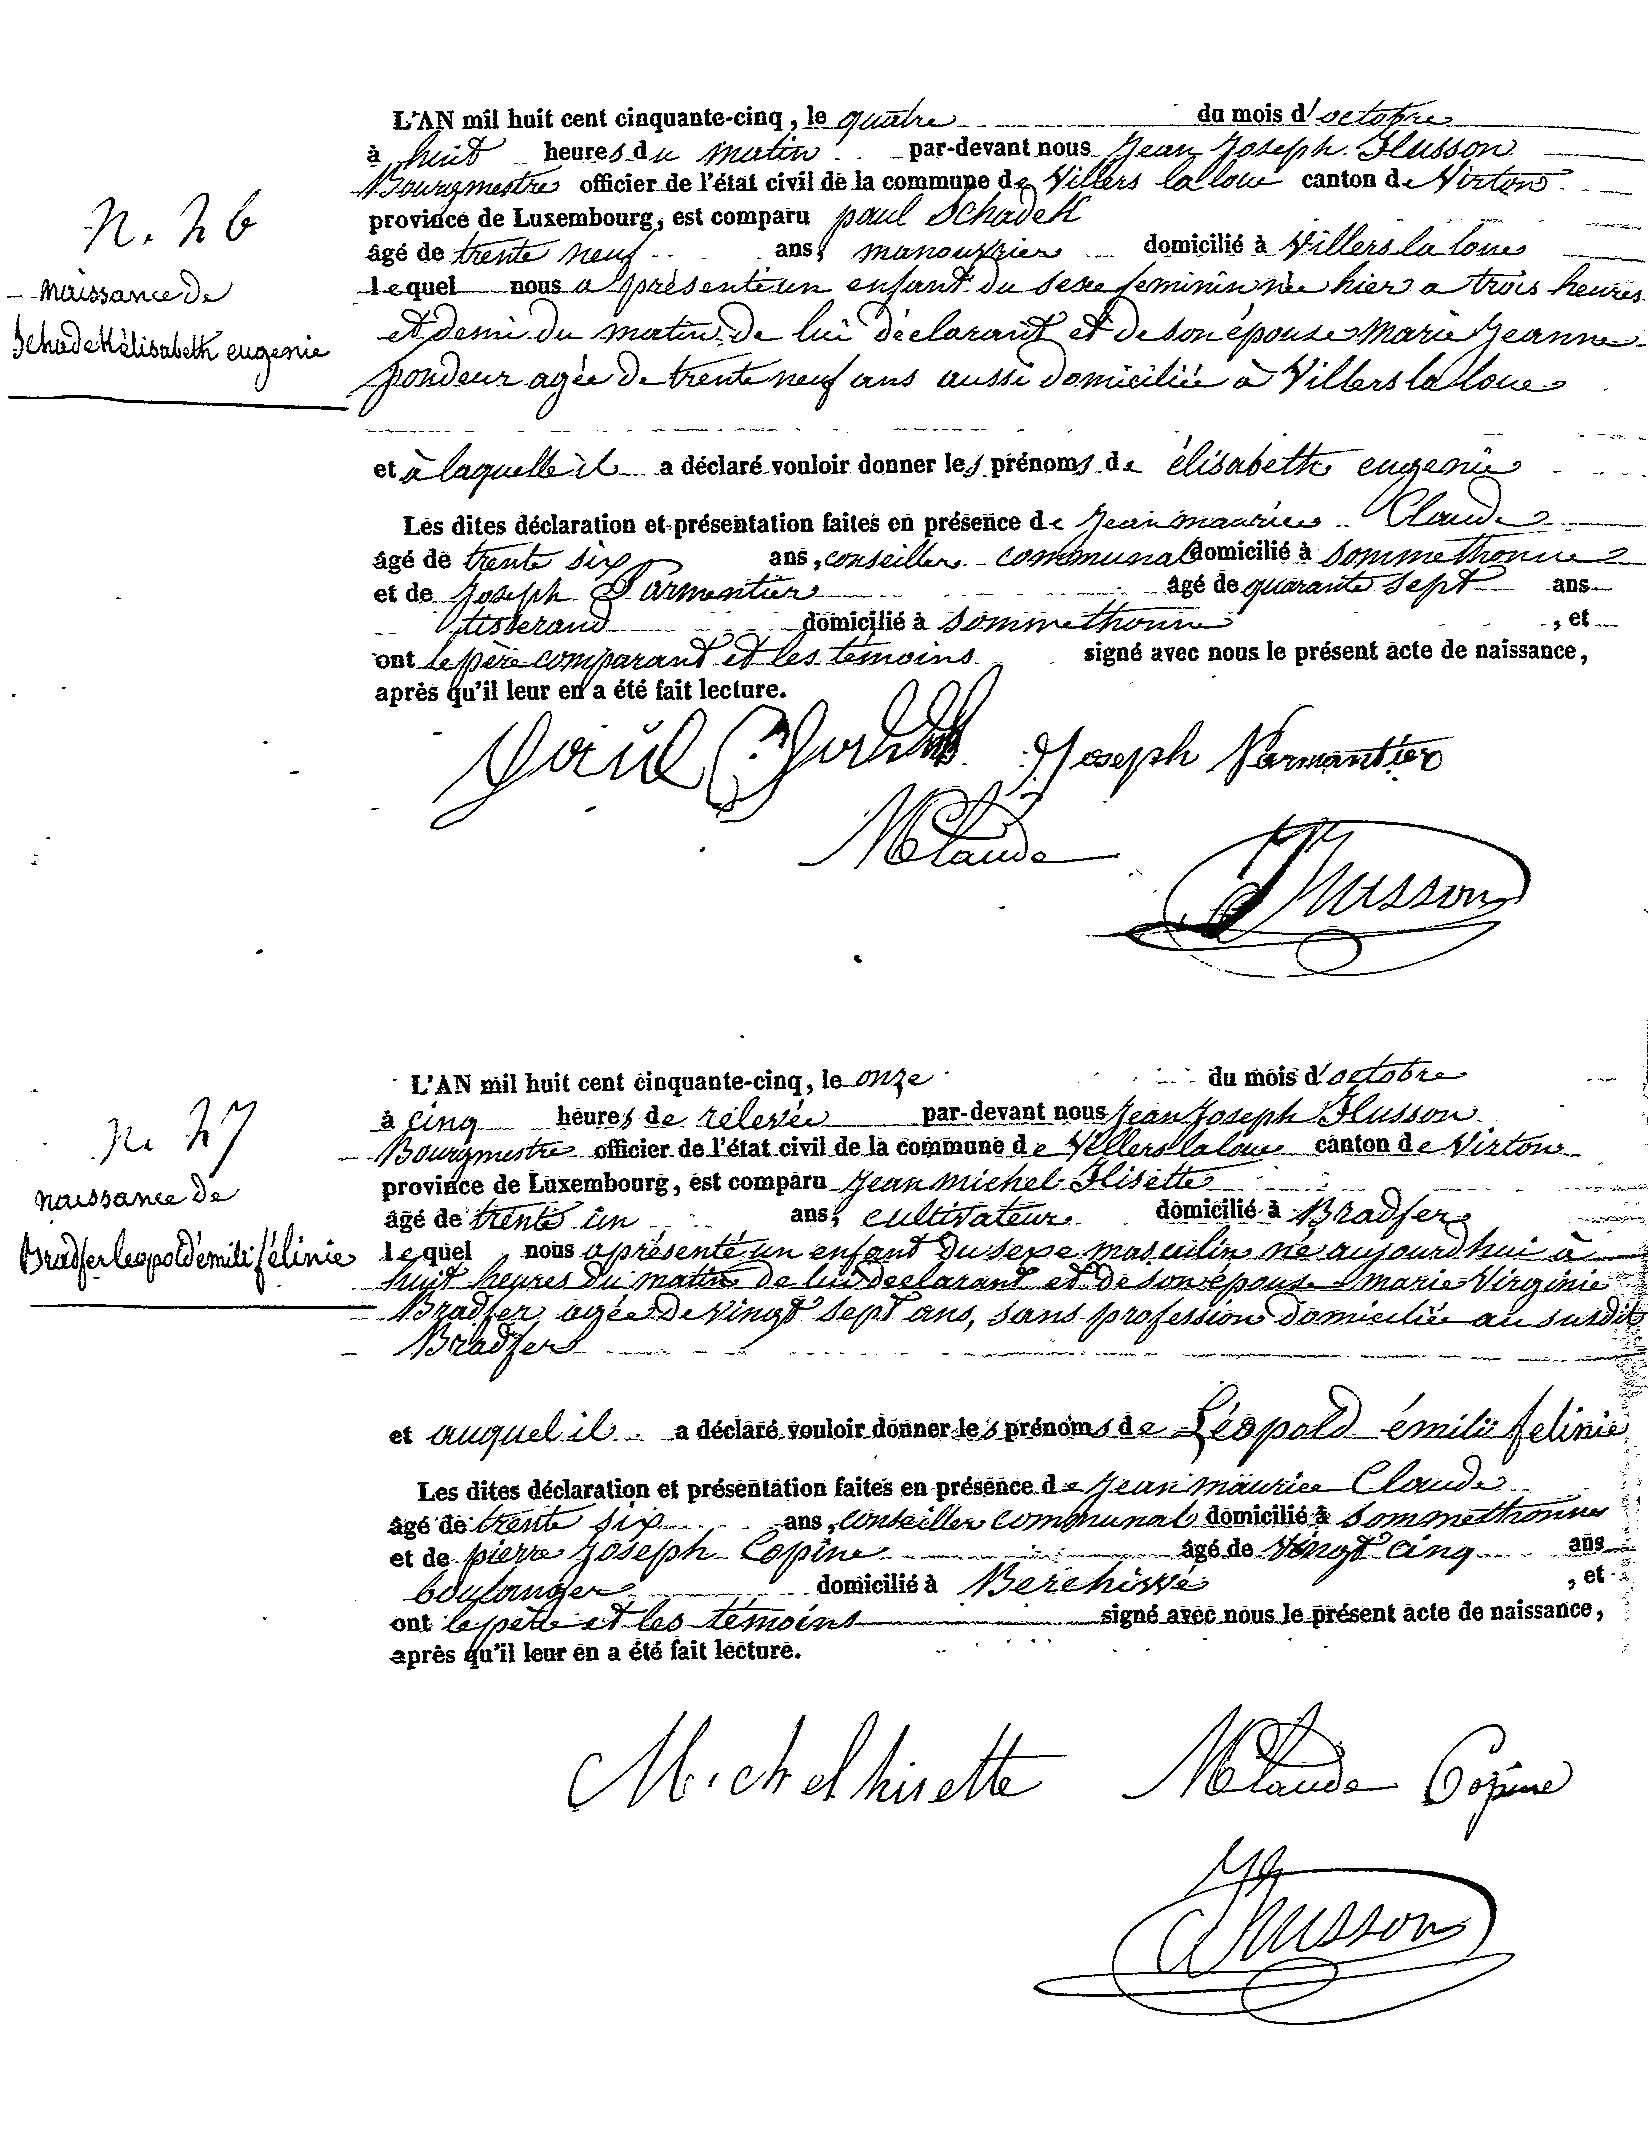 L'AN mil huit cent cinquante-cinq, le quatre du mois d'octobre
à huit heures du matin par-devant nous Jean Joseph Husson
Bourgmestre officier de l'état civil de la commune de Villers la loue canton de Virton
province de Luxembourg, est comparu paul Schadek
N. 26
âgé de trente neuf ans, manouvrier domicilié à Villers la loue
naissance de
lequel nous a présenté un enfant du sexe feminin née hier a trois heures
et demi du matin de lui déclarant et de son épouse Marie Jeanne
Schadek élisabeth eugenie
pondeur agée de trente neuf ans aussi domiciliée à Villers la loue
et à laquelle il a déclaré vouloir donner les prénoms de élisabeth eugenie
Les dites déclaration et présentation faites en présence de Jean maurice Claude
âgé de trente six ans, conseiller communal domicilié à Sommethonne
et de Joseph Parmentier âgé de quarante sept ans
tisserand domicilié à Sommethonne , et
ont le père comparant et les témoins signé avec nous le présent acte de naissance,
après qu'il leur en a été fait lecture.
Paul Joseph Parmantier
MClaude
JHusson
L'AN mil huit cent cinquante-cinq, le onze du mois d'octobre
à cinq heures de rélevée par-devant nous Jean Joseph Husson
N. 27
Bourgmestre officier de l'état civil de la commune de Villers la loue canton de Virton
province de Luxembourg, est comparu Jean michel Hisette
naissance de
âgé de trente un ans, cultivateur domicilié à Bradfer
Bradfer leopold émili félinie
lequel nous a présenté un enfant du sexe masculin né aujourd'hui à
huit heures du matin de lui declarant et de son épouse marie Virginie
Bradfer agée de vingt sept ans, sans profession domiciliée au susdit
Bradfer
et auquel il a déclaré vouloir donner les prénoms de Léopold émilie felinie
Les dites déclaration et présentation faites en présence de Jean maurice Claude
âgé de trente six ans, conseiller communal domicilié à Sommethonne
et de pierre Joseph Copine âgé de Vingt cinq ans
boulanger domicilié à Berchiwé , et
ont le père et les témoins signé avec nous le présent acte de naissance,
après qu'il leur en a été fait lecture.
Michel hisette MClaude Copine
JHusson